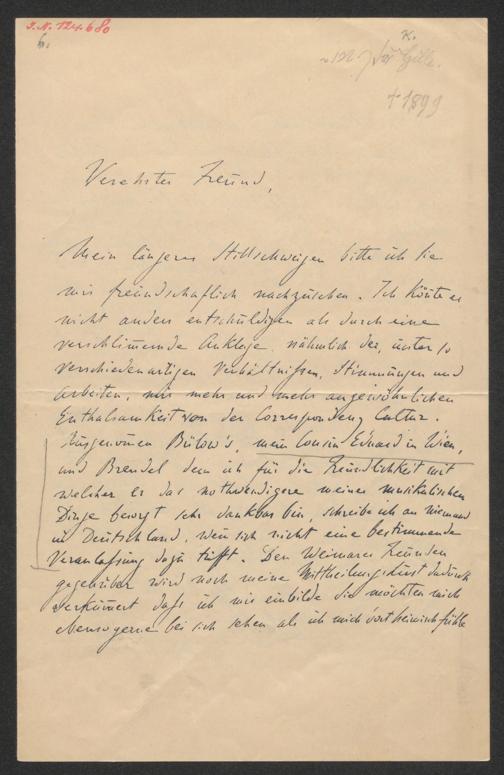 I.N. 124.680
K.
Dr Gille.
† 1899
Verehrter Freund,
Mein längeres Stillschweigen bitte ich Sie
mir freundschaftlich nachzusehen. Ich könte es
nicht anders entschuldigen als durch eine
verschlimernde Anklage, nähmlich der, unter so
verschiedenartigen Verhältnißen, Stimmungen und
Arbeiten, mir mehr und mehr angewöhnlichen
Enthaltsamkeit von der Correspondenz Cultur.
Ausgenomen Bülow's, mein Cousin Eduard in Wien,
und Brendel dem ich für die Freundlichkeit mit
welcher er das nothwendigere meiner musikalischen
Dinge besorgt sehr dankbar bin, schreibe ich an niemand
in Deutschland, wen sich nicht eine bestimmende
Veranlaßung dazu trifft. Den Weimarer Freunden
gegenüber wird noch meine Mittheilungslust dadurch
verkümert daß ich mir einbilde sie möchten mich
ebenso gerne bei sich sehen als ich mich dort heimisch fühle